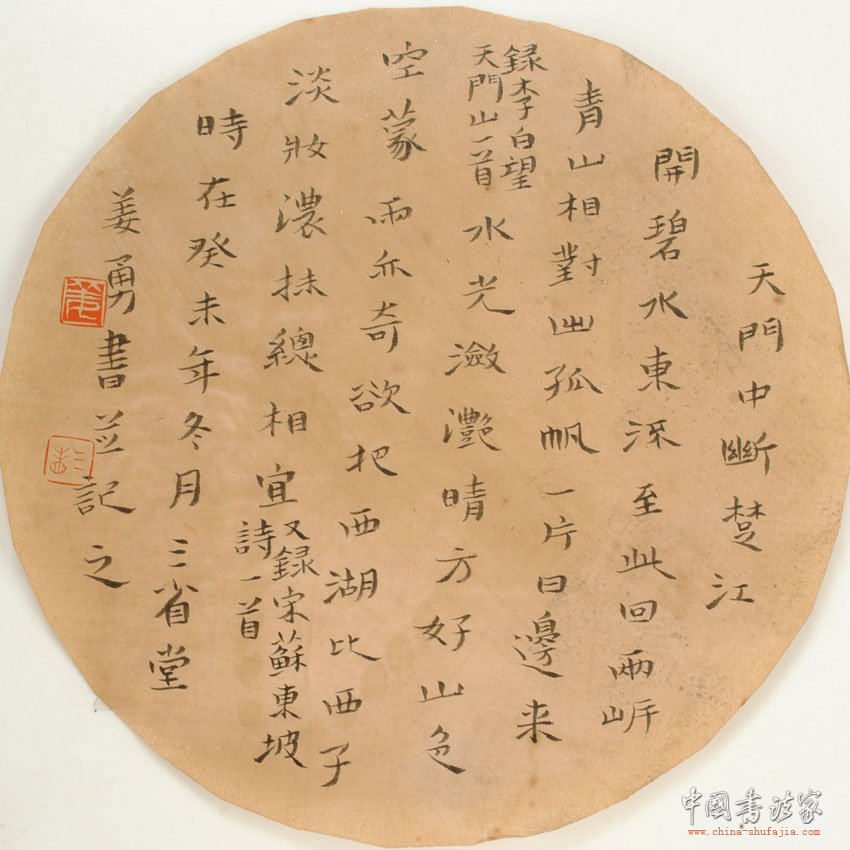 天門中斷楚江
開碧水東流至此回兩岸
青山相對出孤帆一片日邊来
録李白望
天門山一首
水光瀲灧晴方好山色
空蒙雨亦奇欲把西湖比西子
淡妝濃抹總相宜
又録宋蘇東坡
詩一首
時在癸未年冬月三省堂
姜勇書並記之
姜
中國書法家
www.china-shufajia.com